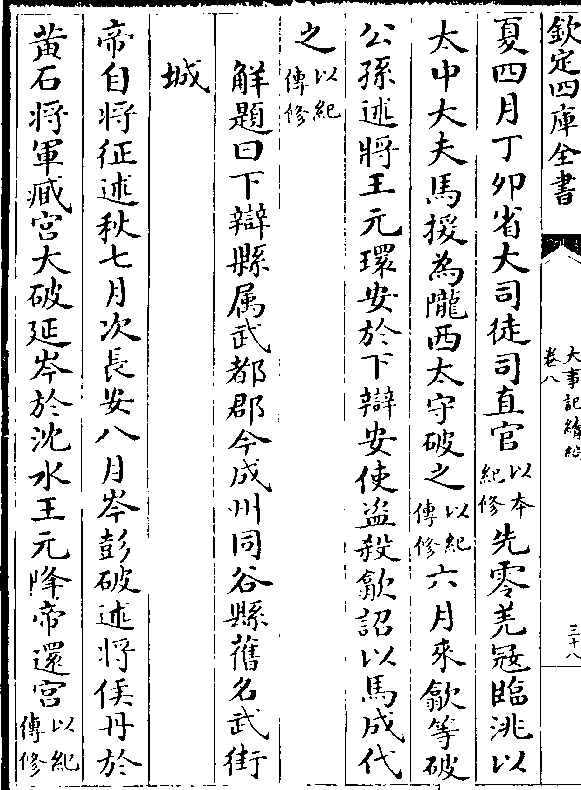 欽定四庫全書
大事記續編
卷八
三十八
夏四月丁卯省大司徒司直官以本紀修先零羌宼臨洮以
太中大夫馬援為隴西太守破之以紀傳修六月來歙等破
公孫述將王元環安於下辯安使盗殺歙詔以馬成代
之以紀傳修
解題曰下辯縣属武都郡今成州同谷縣舊名武街
城
帝自將征述秋七月次長安八月岑彭破述將侯丹於
黄石將軍臧宮大破延岑於沈水王元降帝還宮以紀傳修